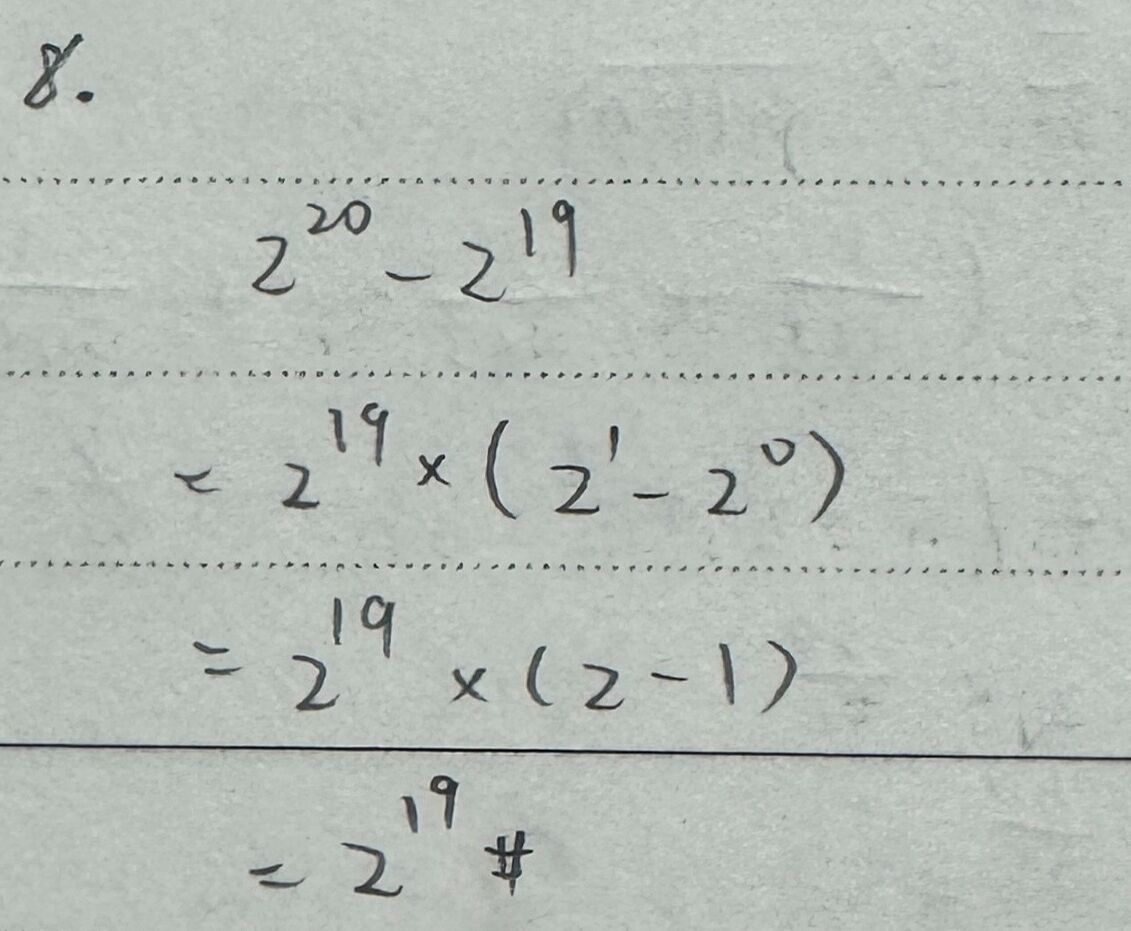 8.
2²⁰ - 2¹⁹
= 2¹⁹ × (2¹ - 2⁰)
= 2¹⁹ × (2 - 1)
= 2¹⁹ #